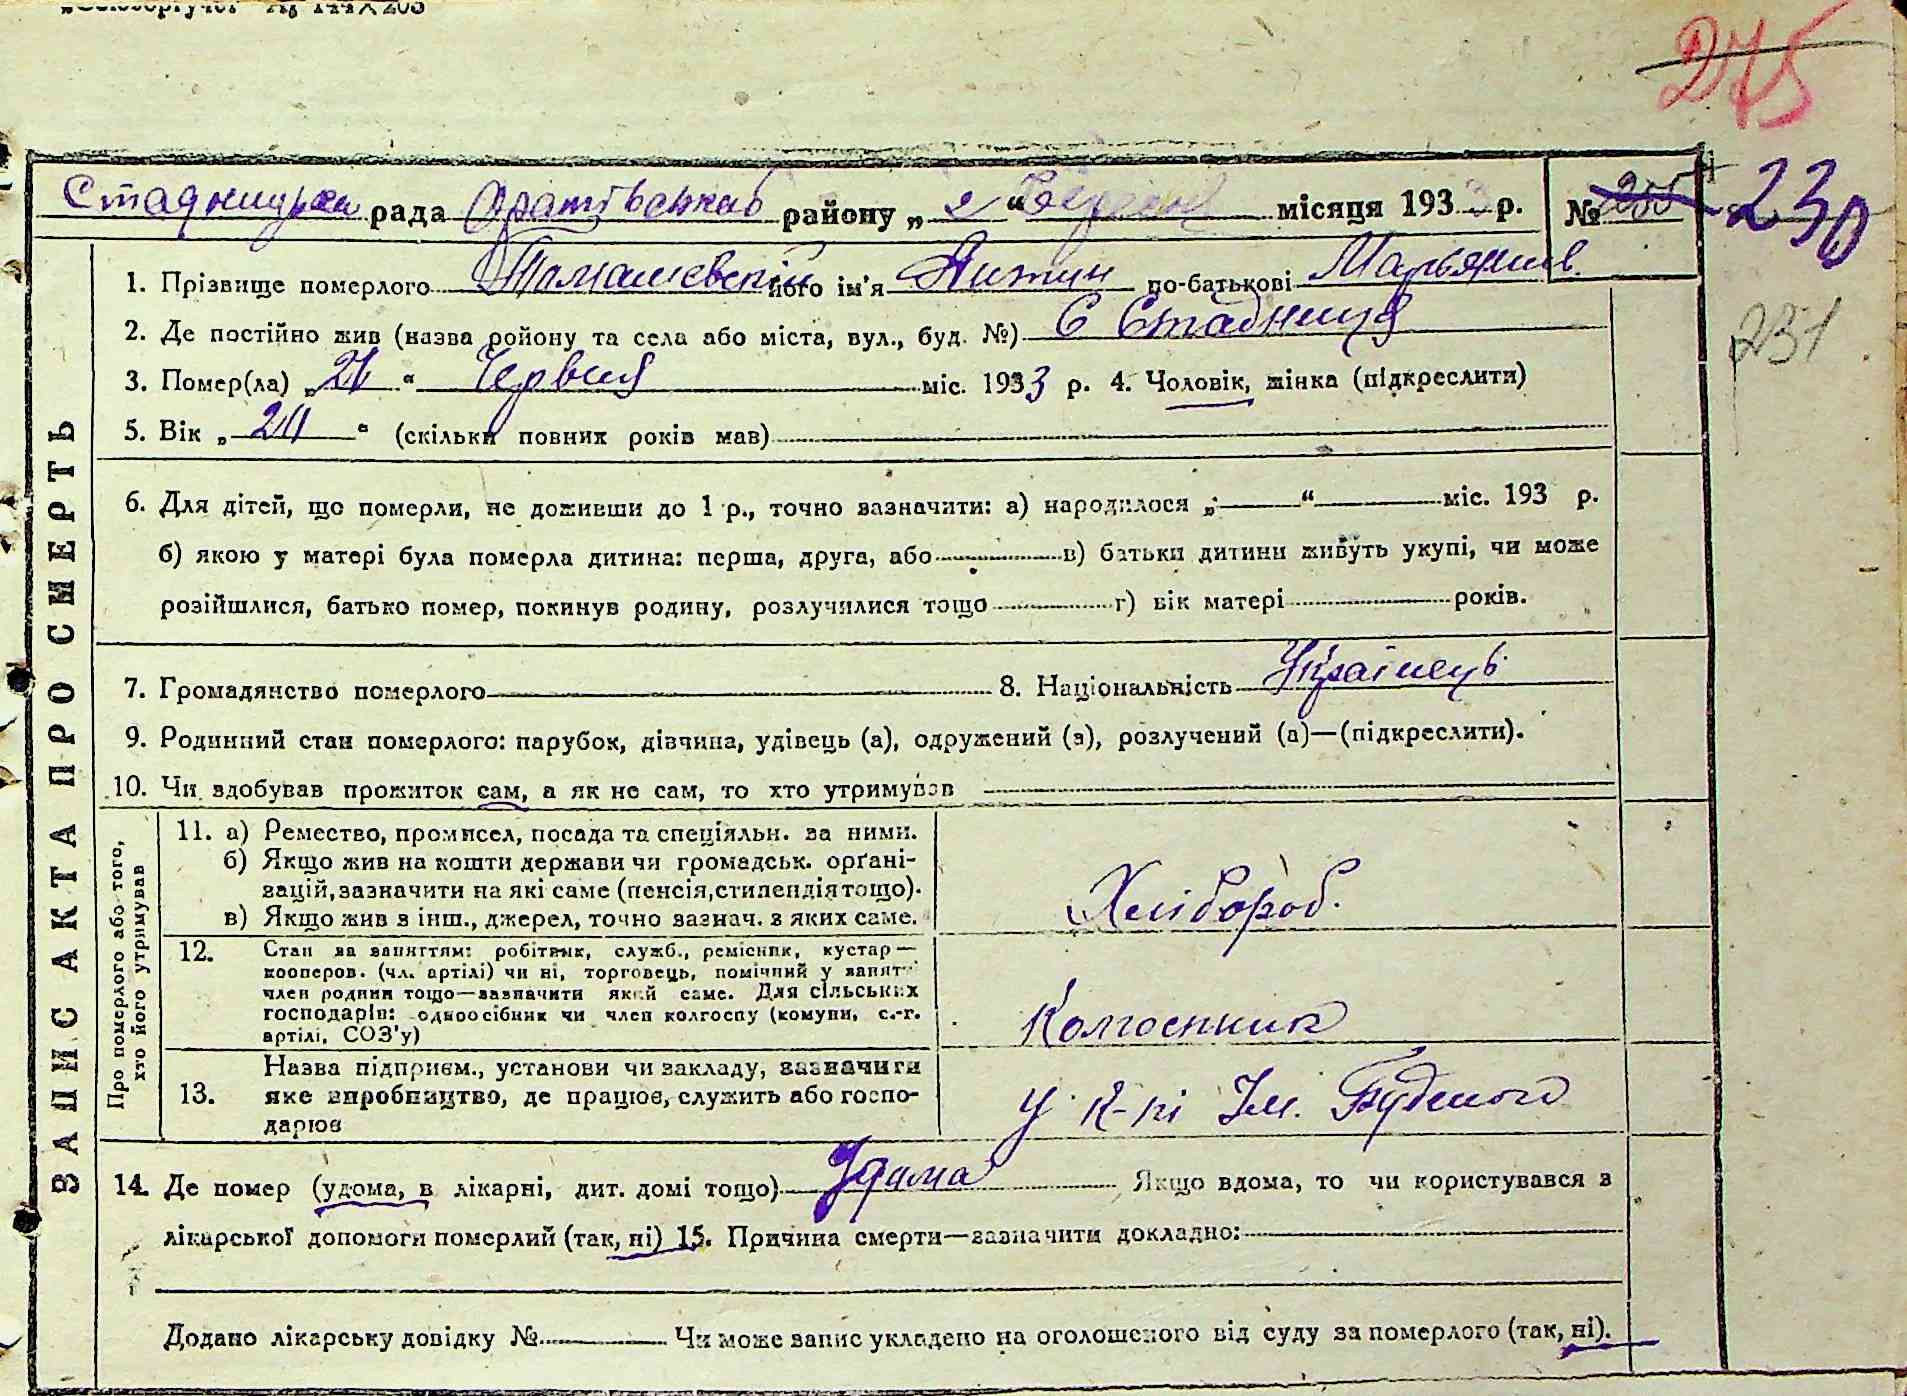 275
Стадницька рада Оратівського району „ “ місяця 1933 р. № 255 230
1. Прізвище померлого Томашевський його ім'я Антин по-батькові Марьянов.
2. Де постійно жив (назва ройону та села або міста, вул., буд. №) С Стадниця
231
3. Помер(ла) „21“ Червня міс. 1933 р. 4. Чоловік, жінка (підкреслити)
5. Вік „ “ (скільки повних років мав)
6. Для дітей, що померли, не доживши до 1 р., точно вазначити: а) народилося „ “ міс. 193 р.
б) якою у матері була померла дитина: перша, друга, або в) батьки дитини живуть укупі, чи може
розійшлися, батько помер, покинув родину, розлучилися тощо г) вік матері років.
7. Громадянство померлого 8. Національність Українець
9. Родинний стан померлого: парубок, дівчина, удівець (а), одружений (а), розлучений (а)—(підкреслити).
10. Чи вдобував прожиток сам, а як не сам, то хто утримував
ЗАПИС АКТА ПРО СМЕРТЬ
Про померлого або того, хто його утримував
11. а) Ремество, промисел, посада та спеціяльн. за ними.
б) Якщо жив на кошти держави чи громадськ. орґані-
зацій, зазначити на які саме (пенсія, стипендія тощо).
в) Якщо жив з інш., джерел, точно зазнач. з яких саме.
Хлібороб.
12. Стан за заняттям: робітник, служб., ремісник, кустар—
кооперов. (чл. артілі) чи ні, торговець, помічний у занят
член родини тощо—зазначити який саме. Для сільських
господарів: одноосібник чи член колгоспу (комуни, с.-г.
артілі, СОЗ'у)
Колгоспник
13. Назва підприєм., установи чи закладу, зазначити
яке виробництво, де працює, служить або госпо-
дарює
у к-пі Ім. Будьоного
14. Де помер (удома, в лікарні, дит. домі тощо) Удома Якщо вдома, то чи користувався з
лікарської допомоги померлий (так, ні) 15. Причина смерти—зазначити докладно:
Додано лікарську довідку № Чи може запис укладено на оголошеного від суду за померлого (так, ні).